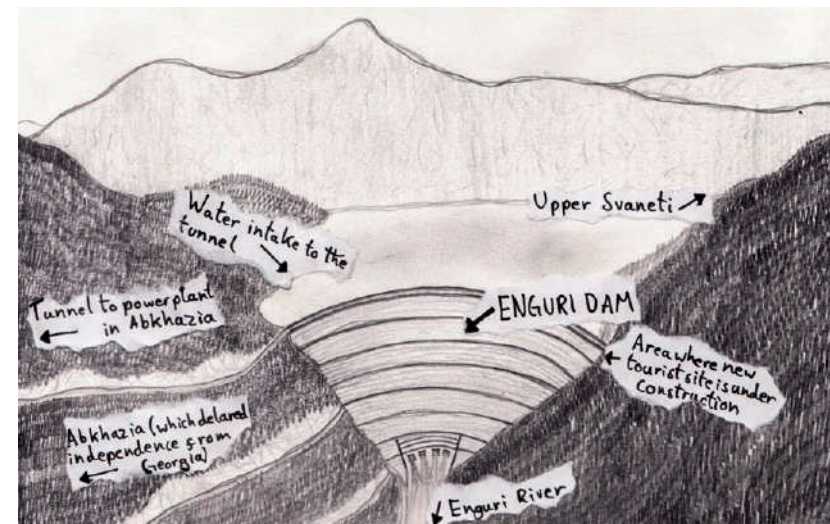 Water intake to the
tunnel
Upper Svaneti
Tunnel to power plant
in Abkhazia
ENGURI DAM
Area where new
tourist site is under
construction
Abkhazia (which delared
independence from
Georgia)
Enguri River